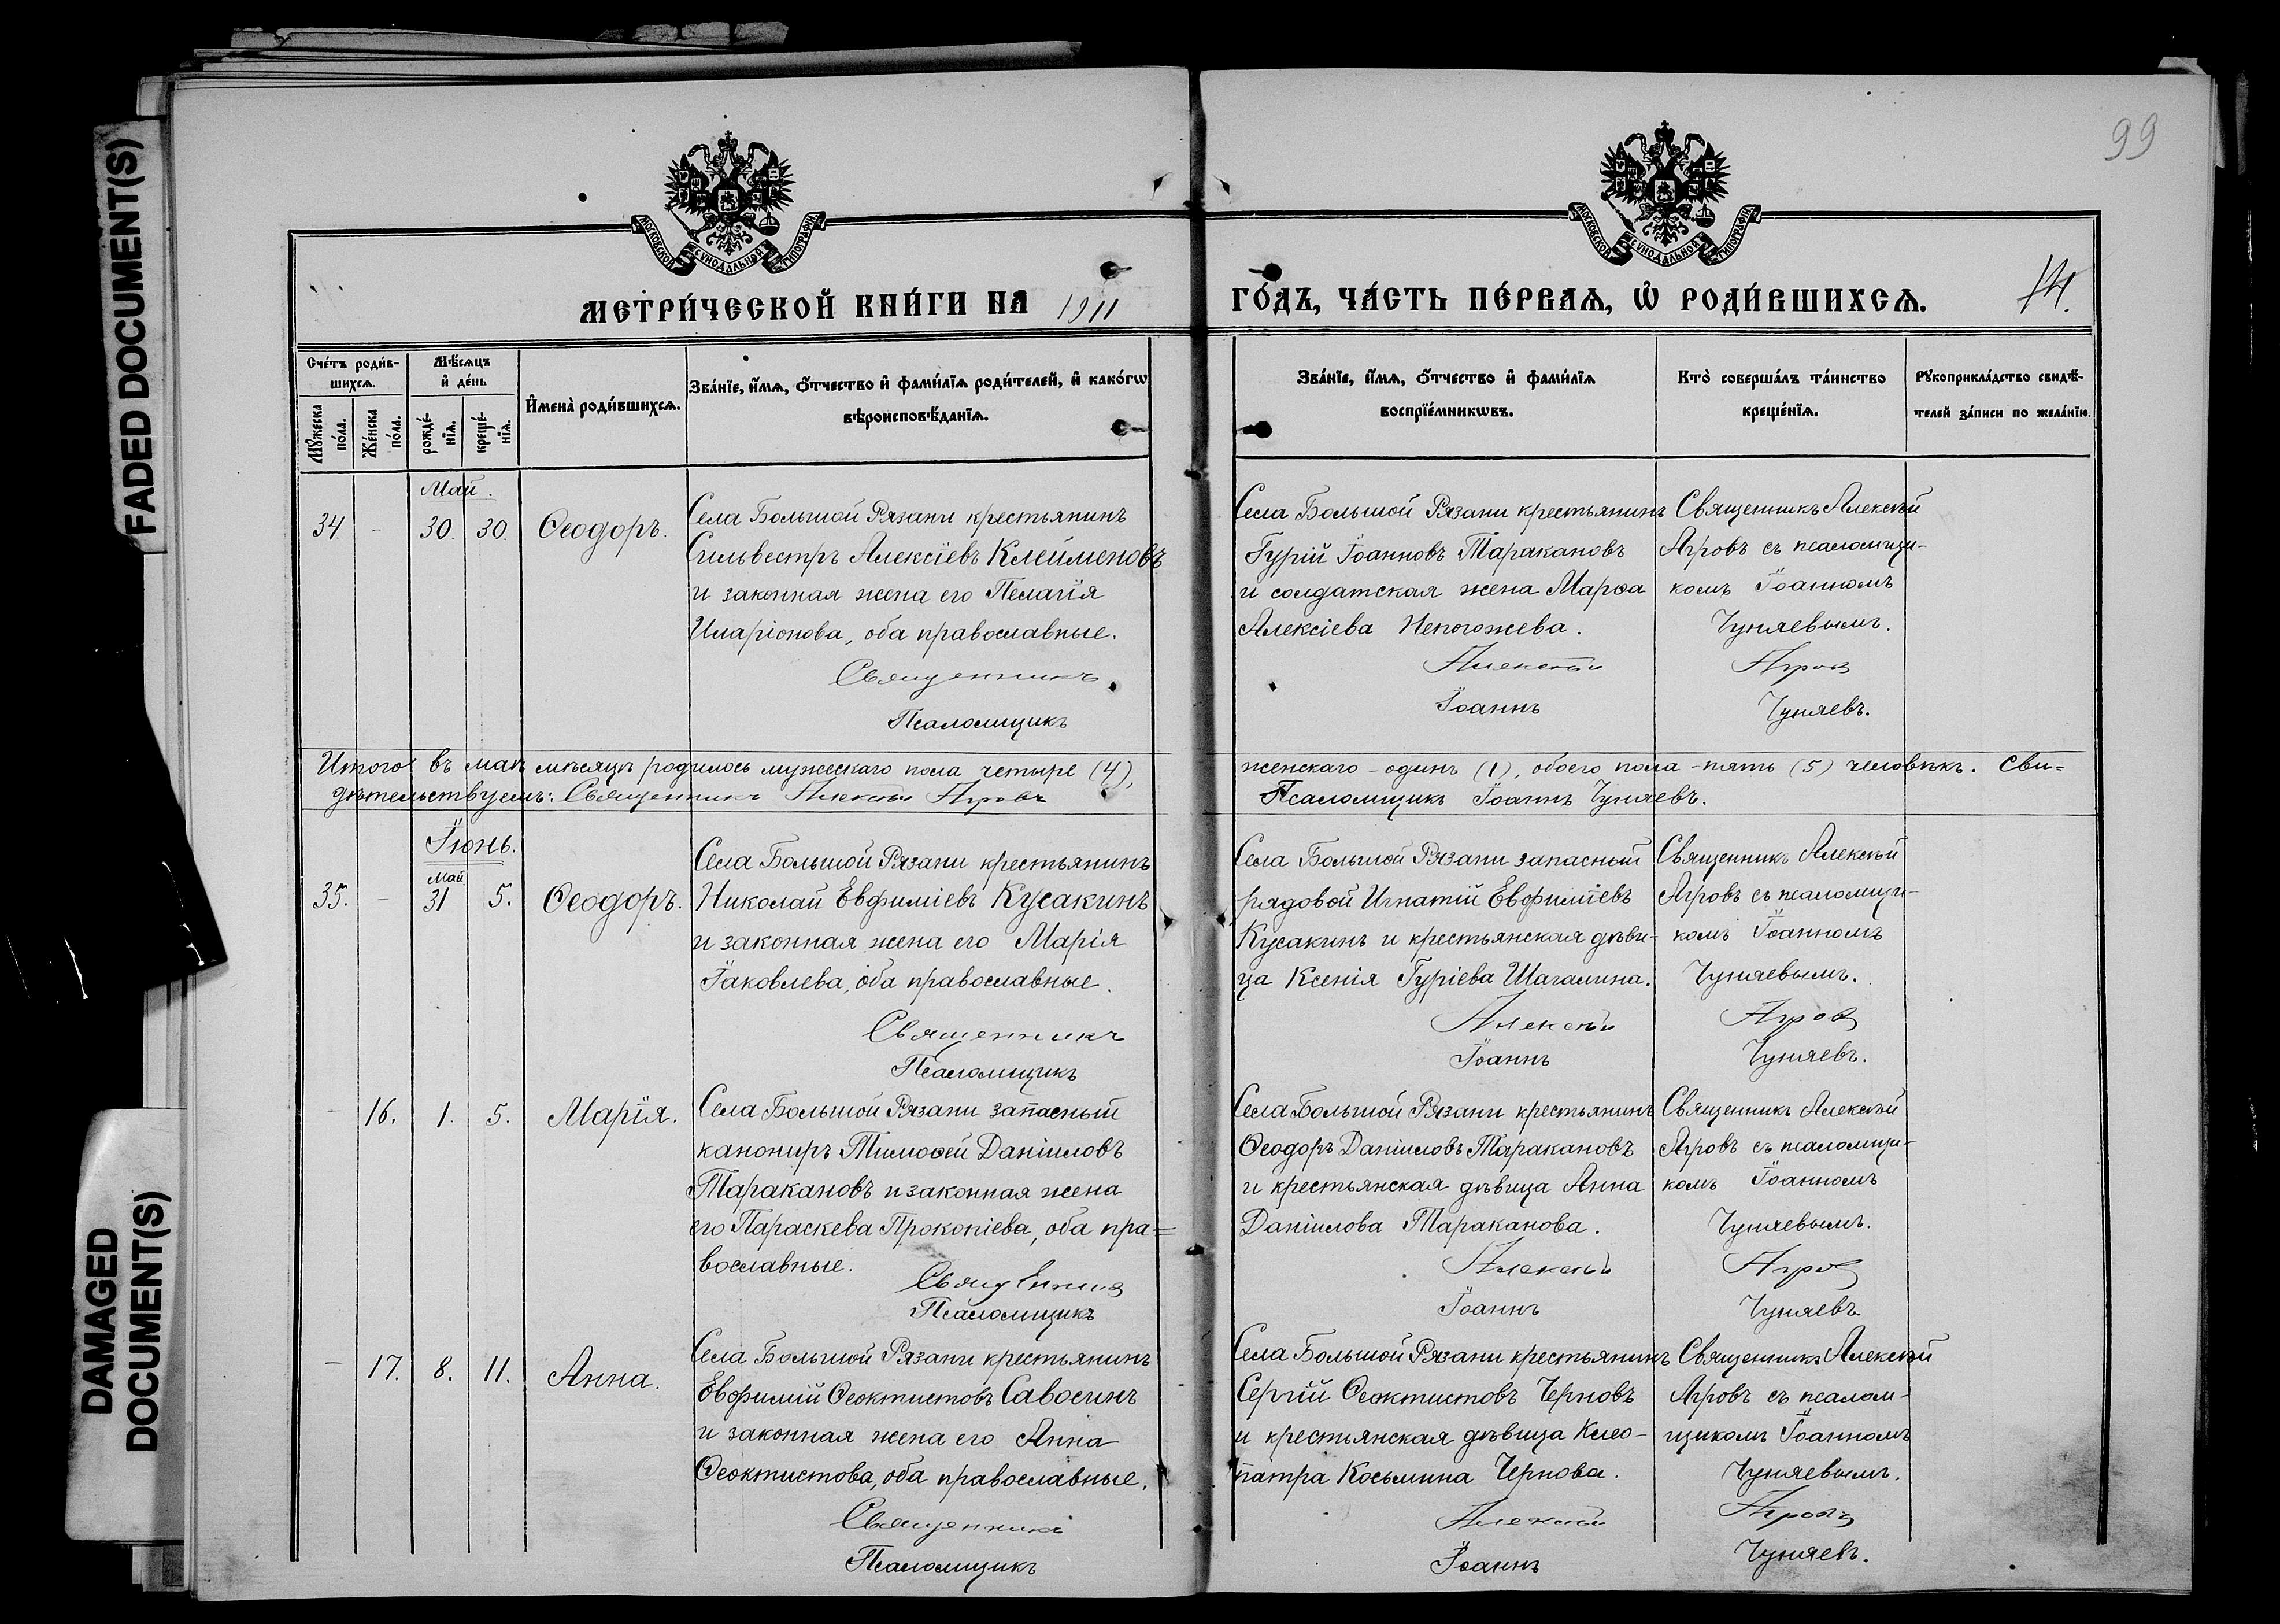 FADED DOCUMENT(S)
DAMAGED
DOCUMENT(S)
99
МОСКОВСКОЙ СѴНОДАЛЬНОЙ ТИПОГРАФІИ
МОСКОВСКОЙ СѴНОДАЛЬНОЙ ТИПОГРАФІИ
МЕТРИ́ЧЕСКОЙ КНИ́ГИ НА 1911
ГО́ДЪ, ЧА́СТЬ ПЕ́РВАѦ, Ѡ҆ РОДИ́ВШИХСѦ.
14.
Сче́тъ роди́в-
шихсѧ.
Мꙋжеска
по́ла.
Же́нска
по́ла.
Мѣ́сѧцъ
и҆ де́нь
рожде́-
нїѧ.
креще́-
нїѧ.
И҆мена̀ роди́вшихсѧ.
Зва́нїе, и҆́мѧ, ѻ҆́тчество и҆ фами́лїѧ роди́телей, и҆ како́гѡ
вѣроисповѣ́данїѧ.
Зва́нїе, и҆́мѧ, ѻ҆́тчество и҆ фами́лїѧ
воспрїе́мникѡвъ.
Кто̀ соверша́лъ та́инство
креще́нїѧ.
Рꙋкоприкла́дство свидѣ́-
телей за́писи по жела́нїю.
Май.
34 - 30. 30. Ѳеодоръ.
Села Большой Рязани крестьянинъ
Сильвестръ Алексіевъ Клейменовъ
и законная жена его Пелагія
Иларіонова, оба православные.
Священникъ
Псаломщикъ
Села Большой Рязани крестьянинъ
Гурій Іоанновъ Таракановъ
и солдатская жена Марѳа
Алексіева Непогожева.
Алексѣй
Іоаннъ
Священникъ Алексѣй
Агровъ съ псаломщи-
комъ Іоанномъ
Чуняевымъ.
Агровъ
Чуняевъ.
Итого въ маѣ мѣсяцѣ родилось мужескаго пола четыре (4),
женскаго - одинъ (1), обоего пола - пять (5) человѣкъ. Сви=
дѣтельствуемъ: Священникъ Алексѣй Агровъ
Псаломщикъ Іоаннъ Чуняевъ.
Іюнь.
Май
35. - 31 5. Ѳеодоръ.
Села Большой Рязани крестьянинъ
Николай Евфиміевъ Кусакинъ
и законная жена его Марія
Іаковлева, оба православные.
Священникъ
Псаломщикъ
Села Большой Рязани запасный
рядовой Игнатій Евфиміевъ
Кусакинъ и крестьянская дѣви-
ца Ксенія Гуріева Шагалина.
Алексѣй
Іоаннъ
Священникъ Алексѣй
Агровъ съ псаломщи-
комъ Іоанномъ
Чуняевымъ.
Агровъ
Чуняевъ.
- 16. 1. 5. Марія.
Села Большой Рязани запасный
канониръ Тимоѳей Даніиловъ
Таракановъ и законная жена
его Параскева Прокопіева, оба пра=
вославные.
Священникъ
Псаломщикъ
Села Большой Рязани крестьянинъ
Ѳеодоръ Даніиловъ Таракановъ
и крестьянская дѣвица Анна
Даніилова Тараканова.
Алексѣй
Іоаннъ
Священникъ Алексѣй
Агровъ съ псаломщи-
комъ Іоанномъ
Чуняевымъ.
Агровъ
Чуняевъ
- 17. 8. 11. Анна.
Села Большой Рязани крестьянинъ
Евфимій Ѳеоктистовъ Савосинъ
и законная жена его Анна
Ѳеоктистова, оба православные.
Священникъ
Псаломщикъ
Села Большой Рязани крестьянинъ
Сергій Ѳеоктистовъ Черновъ
и крестьянская дѣвица Клео-
патра Косьмина Чернова.
Алексѣй
Іоаннъ
Священникъ Алексѣй
Агровъ съ псалом-
щикомъ Іоанномъ
Чуняевымъ.
Агровъ
Чуняевъ.